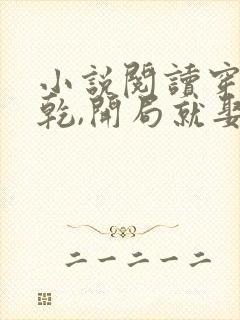 小說閱讀穿
乾,開局就娶
二一二一二